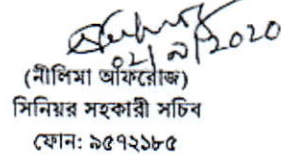 ০২/৯/2020
(নীলিমা আফরোজ)
সিনিয়র সহকারী সচিব
ফোন: ৯৫৭২১৮৫